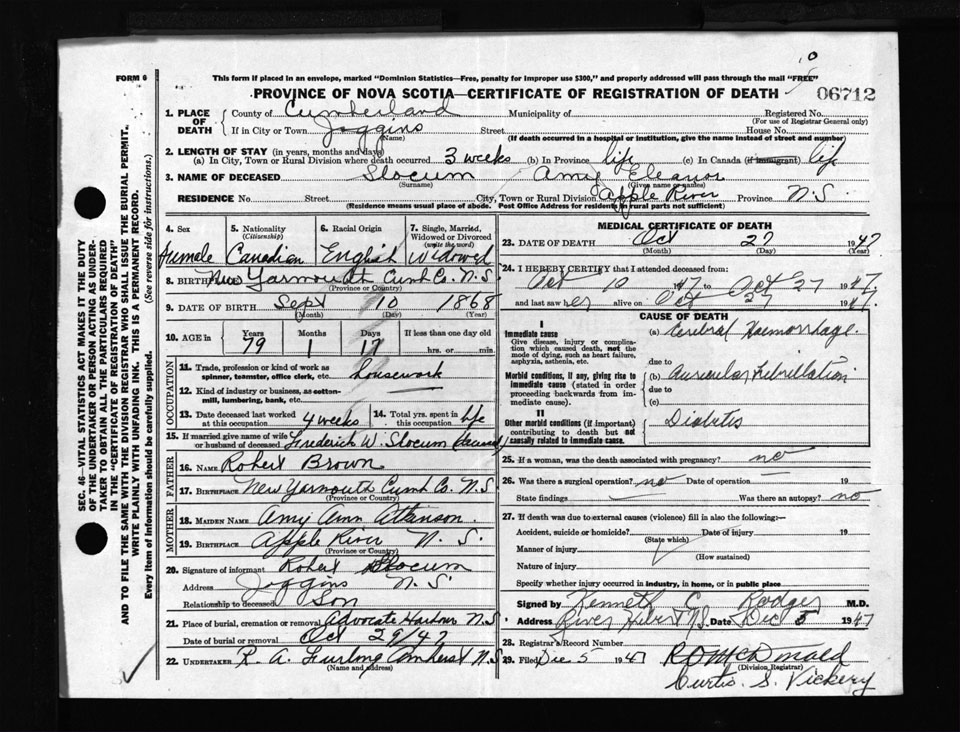 FORM 6
This form if placed in an envelope, marked "Dominion Statistics—Free, penalty for improper use $300," and properly addressed will pass through the mail "FREE"
PROVINCE OF NOVA SCOTIA—CERTIFICATE OF REGISTRATION OF DEATH
06712
SEC. 46—VITAL STATISTICS ACT MAKES IT THE DUTY
OF THE UNDERTAKER OR PERSON ACTING AS UNDER-
TAKER TO OBTAIN ALL THE PARTICULARS REQUIRED
IN THE "CERTIFICATE OF REGISTRATION OF DEATH"
AND TO FILE THE SAME WITH THE DIVISION REGISTRAR WHO SHALL ISSUE THE BURIAL PERMIT.
WRITE PLAINLY WITH UNFADING INK. THIS IS A PERMANENT RECORD.
Every item of information should be carefully supplied. (See reverse side for instructions.)
1. PLACE OF DEATH
County of Cumberland Municipality of Registered No.
(For use of Registrar General only)
If in City or Town Joggins Street House No.
(Name) (If death occurred in a hospital or institution, give the name instead of street and number)
2. LENGTH OF STAY (in years, months and days)
(a) In City, Town or Rural Division where death occurred 3 weeks (b) In Province life (c) In Canada (if immigrant) life
3. NAME OF DECEASED Slocum Amy Eleanor
(Surname) (Given name or names)
RESIDENCE No. Street City, Town or Rural Division Apple River Province N.S.
(Residence means usual place of abode. Post Office Address for residents in rural parts not sufficient)
4. Sex Female
5. Nationality (Citizenship) Canadian
6. Racial Origin English
7. Single, Married, Widowed or Divorced (write the word) Widowed
8. BIRTHPLACE New Yarmouth Cumb Co. N.S.
(Province or Country)
9. DATE OF BIRTH Sept 10 1868
(Month) (Day) (Year)
10. AGE in Years 79 Months 1 Days 17 If less than one day old hrs. or min.
OCCUPATION
11. Trade, profession or kind of work as spinner, teamster, office clerk, etc. housework
12. Kind of industry or business, as cotton-mill, lumbering, bank, etc.
13. Date deceased last worked at this occupation 4 weeks
14. Total yrs. spent in this occupation life
15. If married give name of wife or husband of deceased Frederick W. Slocum (deceased)
FATHER
16. NAME Robert Brown
17. BIRTHPLACE New Yarmouth Cumb Co. N.S.
(Province or Country)
MOTHER
18. MAIDEN NAME Amy Ann Atkinson
19. BIRTHPLACE Apple River N. S.
(Province or Country)
20. Signature of informant Robert Slocum
Address Joggins N.S.
Relationship to deceased Son
21. Place of burial, cremation or removal Advocate Harbour N.S
Date of burial or removal Oct 29/47
22. UNDERTAKER R. A. Furlong Amherst N.S
(Name and address)
MEDICAL CERTIFICATE OF DEATH
23. DATE OF DEATH Oct 27 1947
(Month) (Day) (Year)
24. I HEREBY CERTIFY that I attended deceased from:
Oct 10 1947 to Oct 27 1947.
and last saw her alive on Oct 27 1947.
CAUSE OF DEATH
I
Immediate cause
Give disease, injury or complication which caused death, not the mode of dying, such as heart failure, asphyxia, asthenia, etc.
(a) Cerebral Haemorrhage.
due to
Morbid conditions, if any, giving rise to immediate cause (stated in order proceeding backwards from immediate cause).
(b) Auricular Fibrillation
due to
(c)
II
Other morbid conditions (if important) contributing to death but not causally related to immediate cause.
Diabetes
25. If a woman, was the death associated with pregnancy? no
26. Was there a surgical operation? no Date of operation 19
State findings Was there an autopsy? no
27. If death was due to external causes (violence) fill in also the following:—
Accident, suicide or homicide? Date of injury 19
(State which)
Manner of injury
(How sustained)
Nature of injury
Specify whether injury occurred in industry, in home, or in public place
Signed by Kenneth C Rodger M.D.
Address River Hebert N.S. Date Dec 5 1947
28. Registrar's Record Number
29. Filed Dec 5 1947 R D McDonald
(Division Registrar)
Curtis. S. Vickery